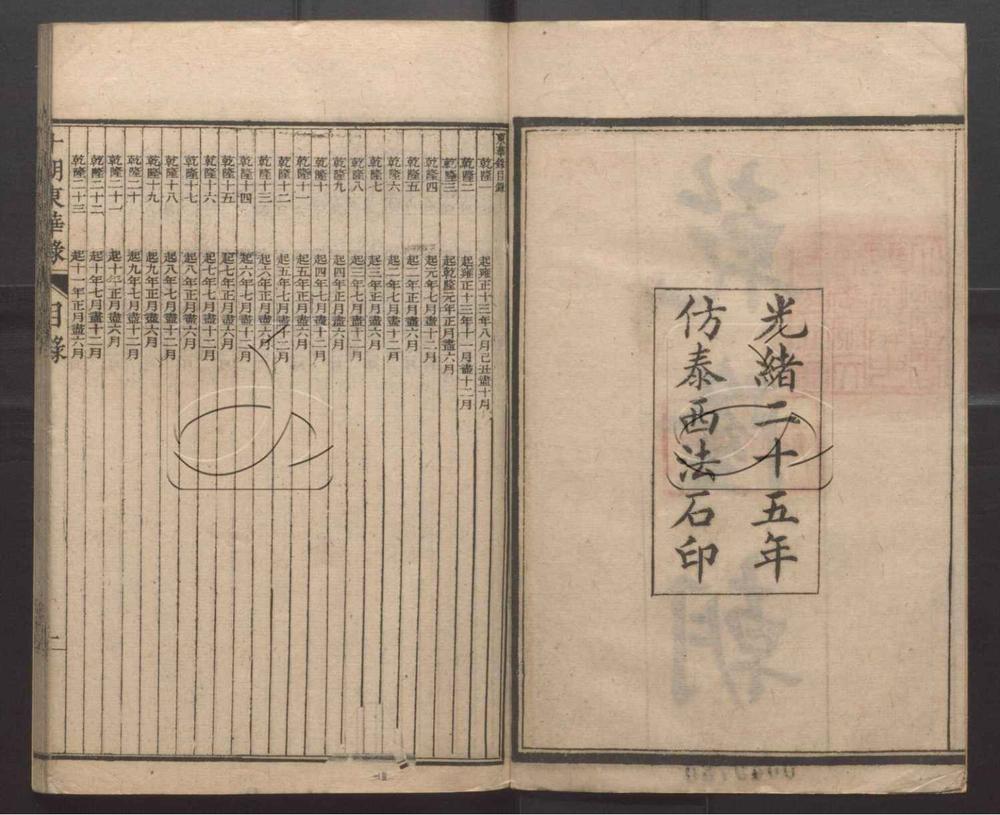 光緒二十五年
仿泰西法石印
東華錄目錄
乾隆一 起雍正十三年八月己丑盡十月
乾隆二 起雍正十三年十一月盡十二月
乾隆三 起乾隆元年正月盡六月
乾隆四 起元年七月盡十二月
乾隆五 起二年正月盡六月
乾隆六 起二年七月盡十二月
乾隆七 起三年正月盡六月
乾隆八 起三年七月盡十二月
乾隆九 起四年正月盡六月
乾隆十 起四年七月盡十二月
乾隆十一 起五年正月盡六月
乾隆十二 起五年七月盡十二月
乾隆十三 起六年正月盡六月
乾隆十四 起六年七月盡十二月
乾隆十五 起七年正月盡六月
乾隆十六 起七年七月盡十二月
乾隆十七 起八年正月盡六月
乾隆十八 起八年七月盡十二月
乾隆十九 起九年正月盡六月
乾隆二十 起九年七月盡十二月
乾隆二十一 起十年正月盡六月
乾隆二十二 起十年七月盡十二月
乾隆二十三 起十一年正月盡六月
十朝東華錄 目錄 一